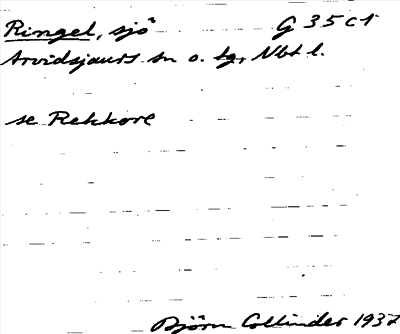 Ringel, sjö G 35 c 1
Arvidsjaurs sn o. tg, Nbt l.
se Rekkore
Björn Collinder 1937